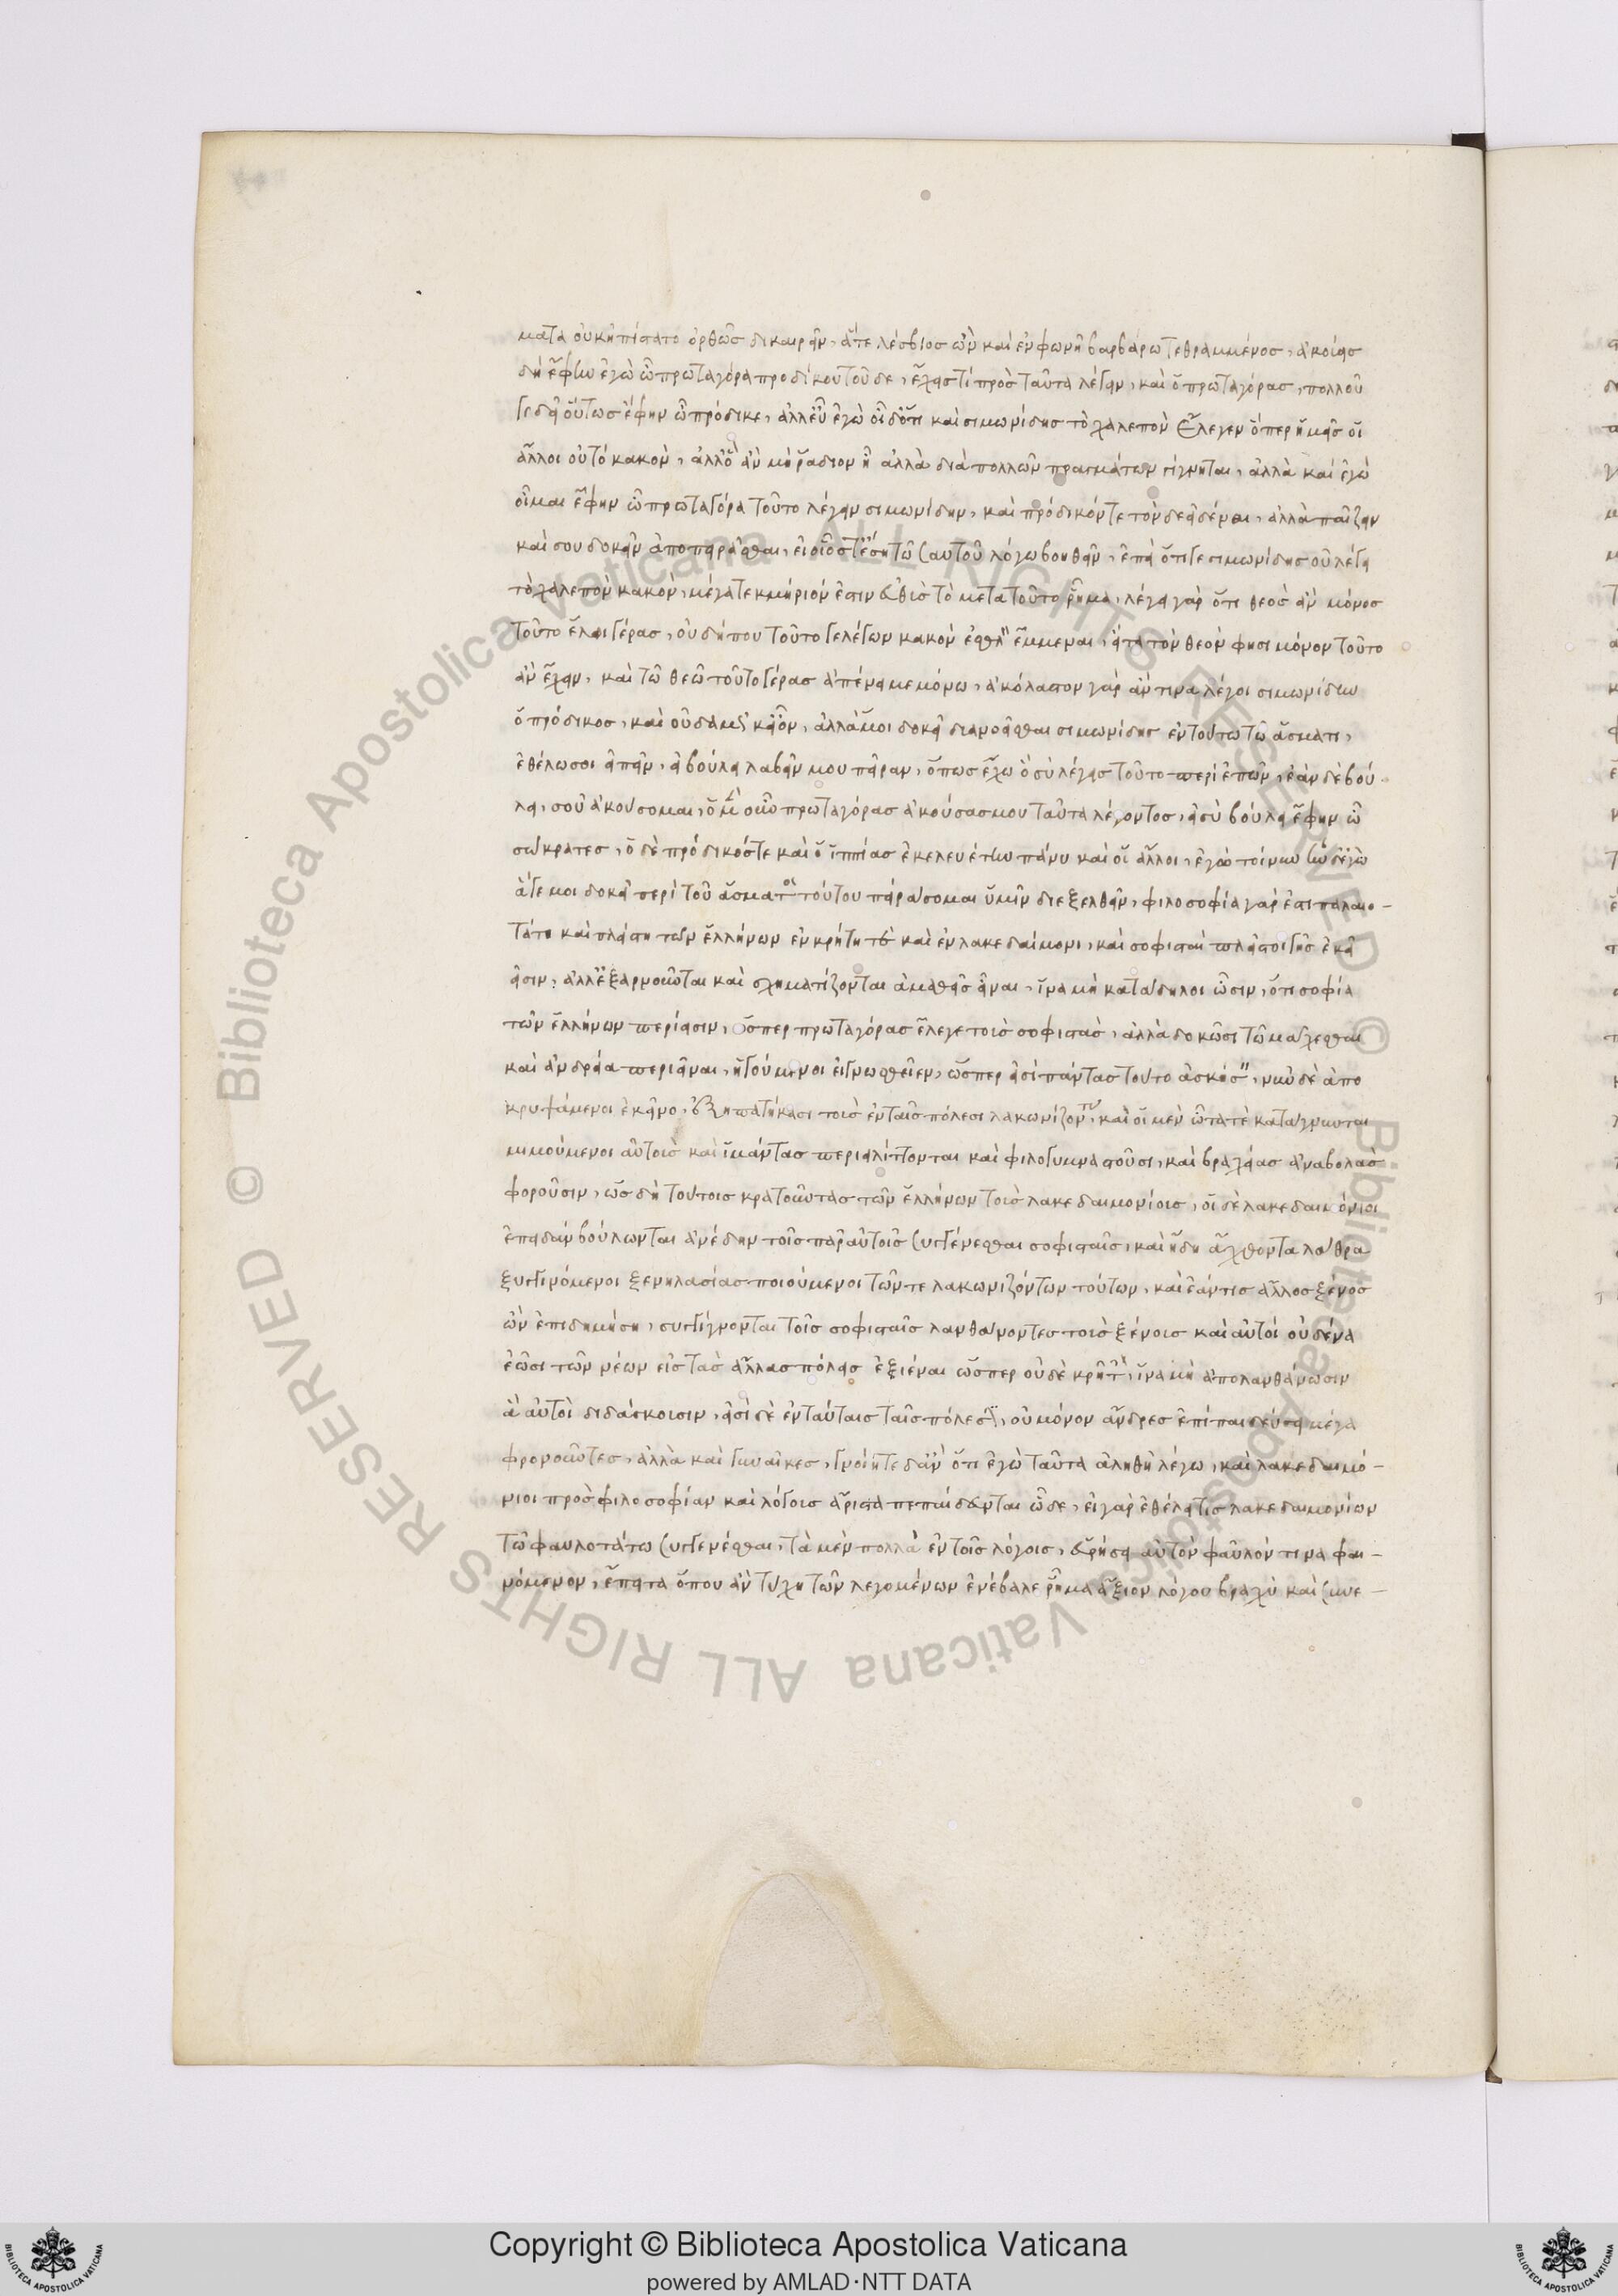 ματα οὐκ ἠπίστατο ὀρθῶς διαιρεῖν, ἅτε λέσβιος ὢν καὶ ἐν φωνῇ βαρβάρω τεθραμμένος, ἀκούεις
δὴ ἔφην ἐγὼ ὦ πρωταγόρα προδίκου τοῦδε, ἔχεις τί πρὸς ταῦτα λέγειν, καὶ ὁ πρωταγόρας, πολλοῦ
γε δεῖ οὕτως ἔφην ὦ πρόδικε, ἀλλ' εὖ ἐγὼ οἶδ' ὅτι καὶ σιμωνίδης τὸ χαλεπὸν ἔλεγεν ὅπερ ἡμεῖς οἱ
ἄλλοι οὐ τὸ κακὸν, ἀλλ' ὃ ἂν μὴ ῥάδιον ἦ ἀλλὰ διὰ πολλῶν πραγμάτων γίγνηται, ἀλλὰ καὶ ἐγὼ
οἶμαι ἔφην ὦ πρωταγόρα τοῦτο λέγειν σιμωνίδην, καὶ πρόδικόν τε τόνδε εἰδέναι, ἀλλὰ παίζειν
καὶ σου δοκεῖν ἀποπειρᾶσθαι, εἰ οἷός τ' ἔση τῶ σαυτοῦ λόγω βοηθεῖν, ἐπεὶ ὅτι γε σιμωνίδης οὐ λέγει
τὸ χαλεπὸν κακὸν, μέγα τεκμήριόν ἐστιν εὐθὺς τὸ μετὰ τοῦτο ῥῆμα, λέγει γὰρ ὅτι θεὸς ἂν μόνος
τοῦτο ἔχοι γέρας, οὐ δήπου τοῦτό γε λέγων κακὸν ἐσθλὸν ἔμμεναι, εἶτα τὸν θεόν φησι μόνον τοῦτο
ἂν ἔχειν, καὶ τῶ θεῶ τοῦτο γέρας ἀπένειμε μόνω, ἀκόλαστον γὰρ ἄν τινα λέγοι σιμωνίδην
ὁ πρόδικος, καὶ οὐδαμῶς κεῖον, ἀλλὰ μοι δοκεῖ διανοεῖσθαι σιμωνίδης ἐν τούτω τῶ ἄσματι,
ἐθέλω σοι εἰπεῖν, εἰ βούλει λαβεῖν μου πεῖραν, ὅπως ἔχω ὃ σὺ λέγεις τοῦτο περὶ ἐπῶν, ἐὰν δὲ βού-
λει, σοῦ ἀκούσομαι, ὁ μὲν οὖν πρωταγόρας ἀκούσας μου ταῦτα λέγοντος, εἰ σὺ βούλει ἔφην ὦ
σώκρατες, ὁ δὲ πρόδικός τε καὶ ὁ ἱππίας ἐκελευέτην πάνυ καὶ οἱ ἄλλοι, ἐγὼ τοίνυν ἦν δ' ἐγὼ
ἅ γέ μοι δοκεῖ περὶ τοῦ ἄσματος τούτου πειράσομαι ὑμῖν διεξελθεῖν, φιλοσοφία γάρ ἐστι παλαιο-
τάτη καὶ πλείστη τῶν ἑλλήνων ἐν κρήτη τε καὶ ἐν λακεδαίμονι, καὶ σοφισταὶ πλεῖστοι γῆς ἐκεῖ
εἰσιν, ἀλλ' ἐξαρνοῦνται καὶ σχηματίζονται ἀμαθεῖς εἶναι, ἵνα μὴ κατάδηλοι ὦσιν, ὅτι σοφία
τῶν ἑλλήνων περίεισιν, ὥσπερ πρωταγόρας ἔλεγε τοὺς σοφιστὰς, ἀλλὰ δοκῶσι τῶ μάχεσθαι
καὶ ἀνδρεία περιεῖναι, ἡγούμενοι εἰ γνωσθεῖεν, ὥσπερ εἰσὶ πάντας τοῦτο ἀσκήσειν, νῦν δὲ ἀπο
κρυψάμενοι ἐκεῖνο, ἐξηπατήκασι τοὺς ἐν ταῖς πόλεσι λακωνίζοντας, καὶ οἱ μὲν ὦτά τε κατάγνυνται
μιμούμενοι αὐτοὺς καὶ ἱμάντας περιειλίττονται καὶ φιλογυμναστοῦσι, καὶ βραχείας ἀναβολὰς
φοροῦσιν, ὡς δὴ τούτοις κρατοῦντας τῶν ἑλλήνων τοὺς λακεδαιμονίους, οἱ δὲ λακεδαιμόνιοι
ἐπειδὰν βούλωνται ἀνέδην τοῖς παρ' αὐτοῖς συγγένεσθαι σοφισταῖς, καὶ ἤδη ἄχθονται λάθρα
ξυγγινόμενοι ξενηλασίας ποιούμενοι τῶν τε λακωνιζόντων τούτων, καὶ ἐάν τις ἄλλος ξένος
ὢν ἐπιδημήση, συγγίγνονται τοῖς σοφισταῖς λανθάνοντες τοὺς ξένους καὶ αὐτοὶ οὐδένα
ἐῶσι τῶν νέων εἰς τὰς ἄλλας πόλεις ἐξιέναι ὥσπερ οὐδὲ κρῆτες, ἵνα μὴ ἀπολανθάνωσιν
ἃ αὐτοὶ διδάσκουσιν, εἰσὶ δὲ ἐν ταύταις ταῖς πόλεσιν, οὐ μόνον ἄνδρες ἐπὶ παιδεύσει μέγα
φρονοῦντες, ἀλλὰ καὶ γυναῖκες, γνοίητε δ' ἂν ὅτι ἐγὼ ταῦτα ἀληθῆ λέγω, καὶ λακεδαιμό-
νιοι πρὸς φιλοσοφίαν καὶ λόγους ἄριστα πεπαίδευνται ὧδε, εἰ γὰρ ἐθέλει τις λακεδαιμονίων
τῶ φαυλοτάτω συγγενέσθαι, τὰ μὲν πολλὰ ἐν τοῖς λόγοις, εὑρήσει αὐτὸν φαῦλόν τινα φαι-
νόμενον, ἔπειτα ὅπου ἂν τύχη τῶν λεγομένων ἐνέβαλε ῥῆμα ἄξιον λόγου βραχὺ καὶ συνε-
Copyright © Biblioteca Apostolica Vaticana
powered by AMLAD·NTT DATA